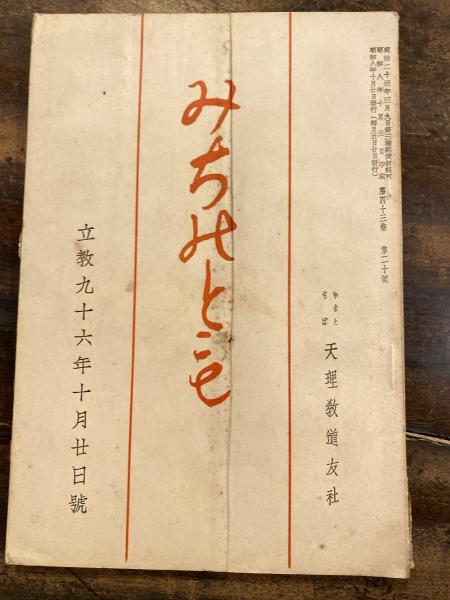 明治二十五年三月九日第三種郵便物認可
昭和八年十月廿日發行(毎月五日廿日發行)
第四十三卷 第二十號
やまと
ぢば
天理敎道友社
みちのとも
立敎九十六年十月廿日號